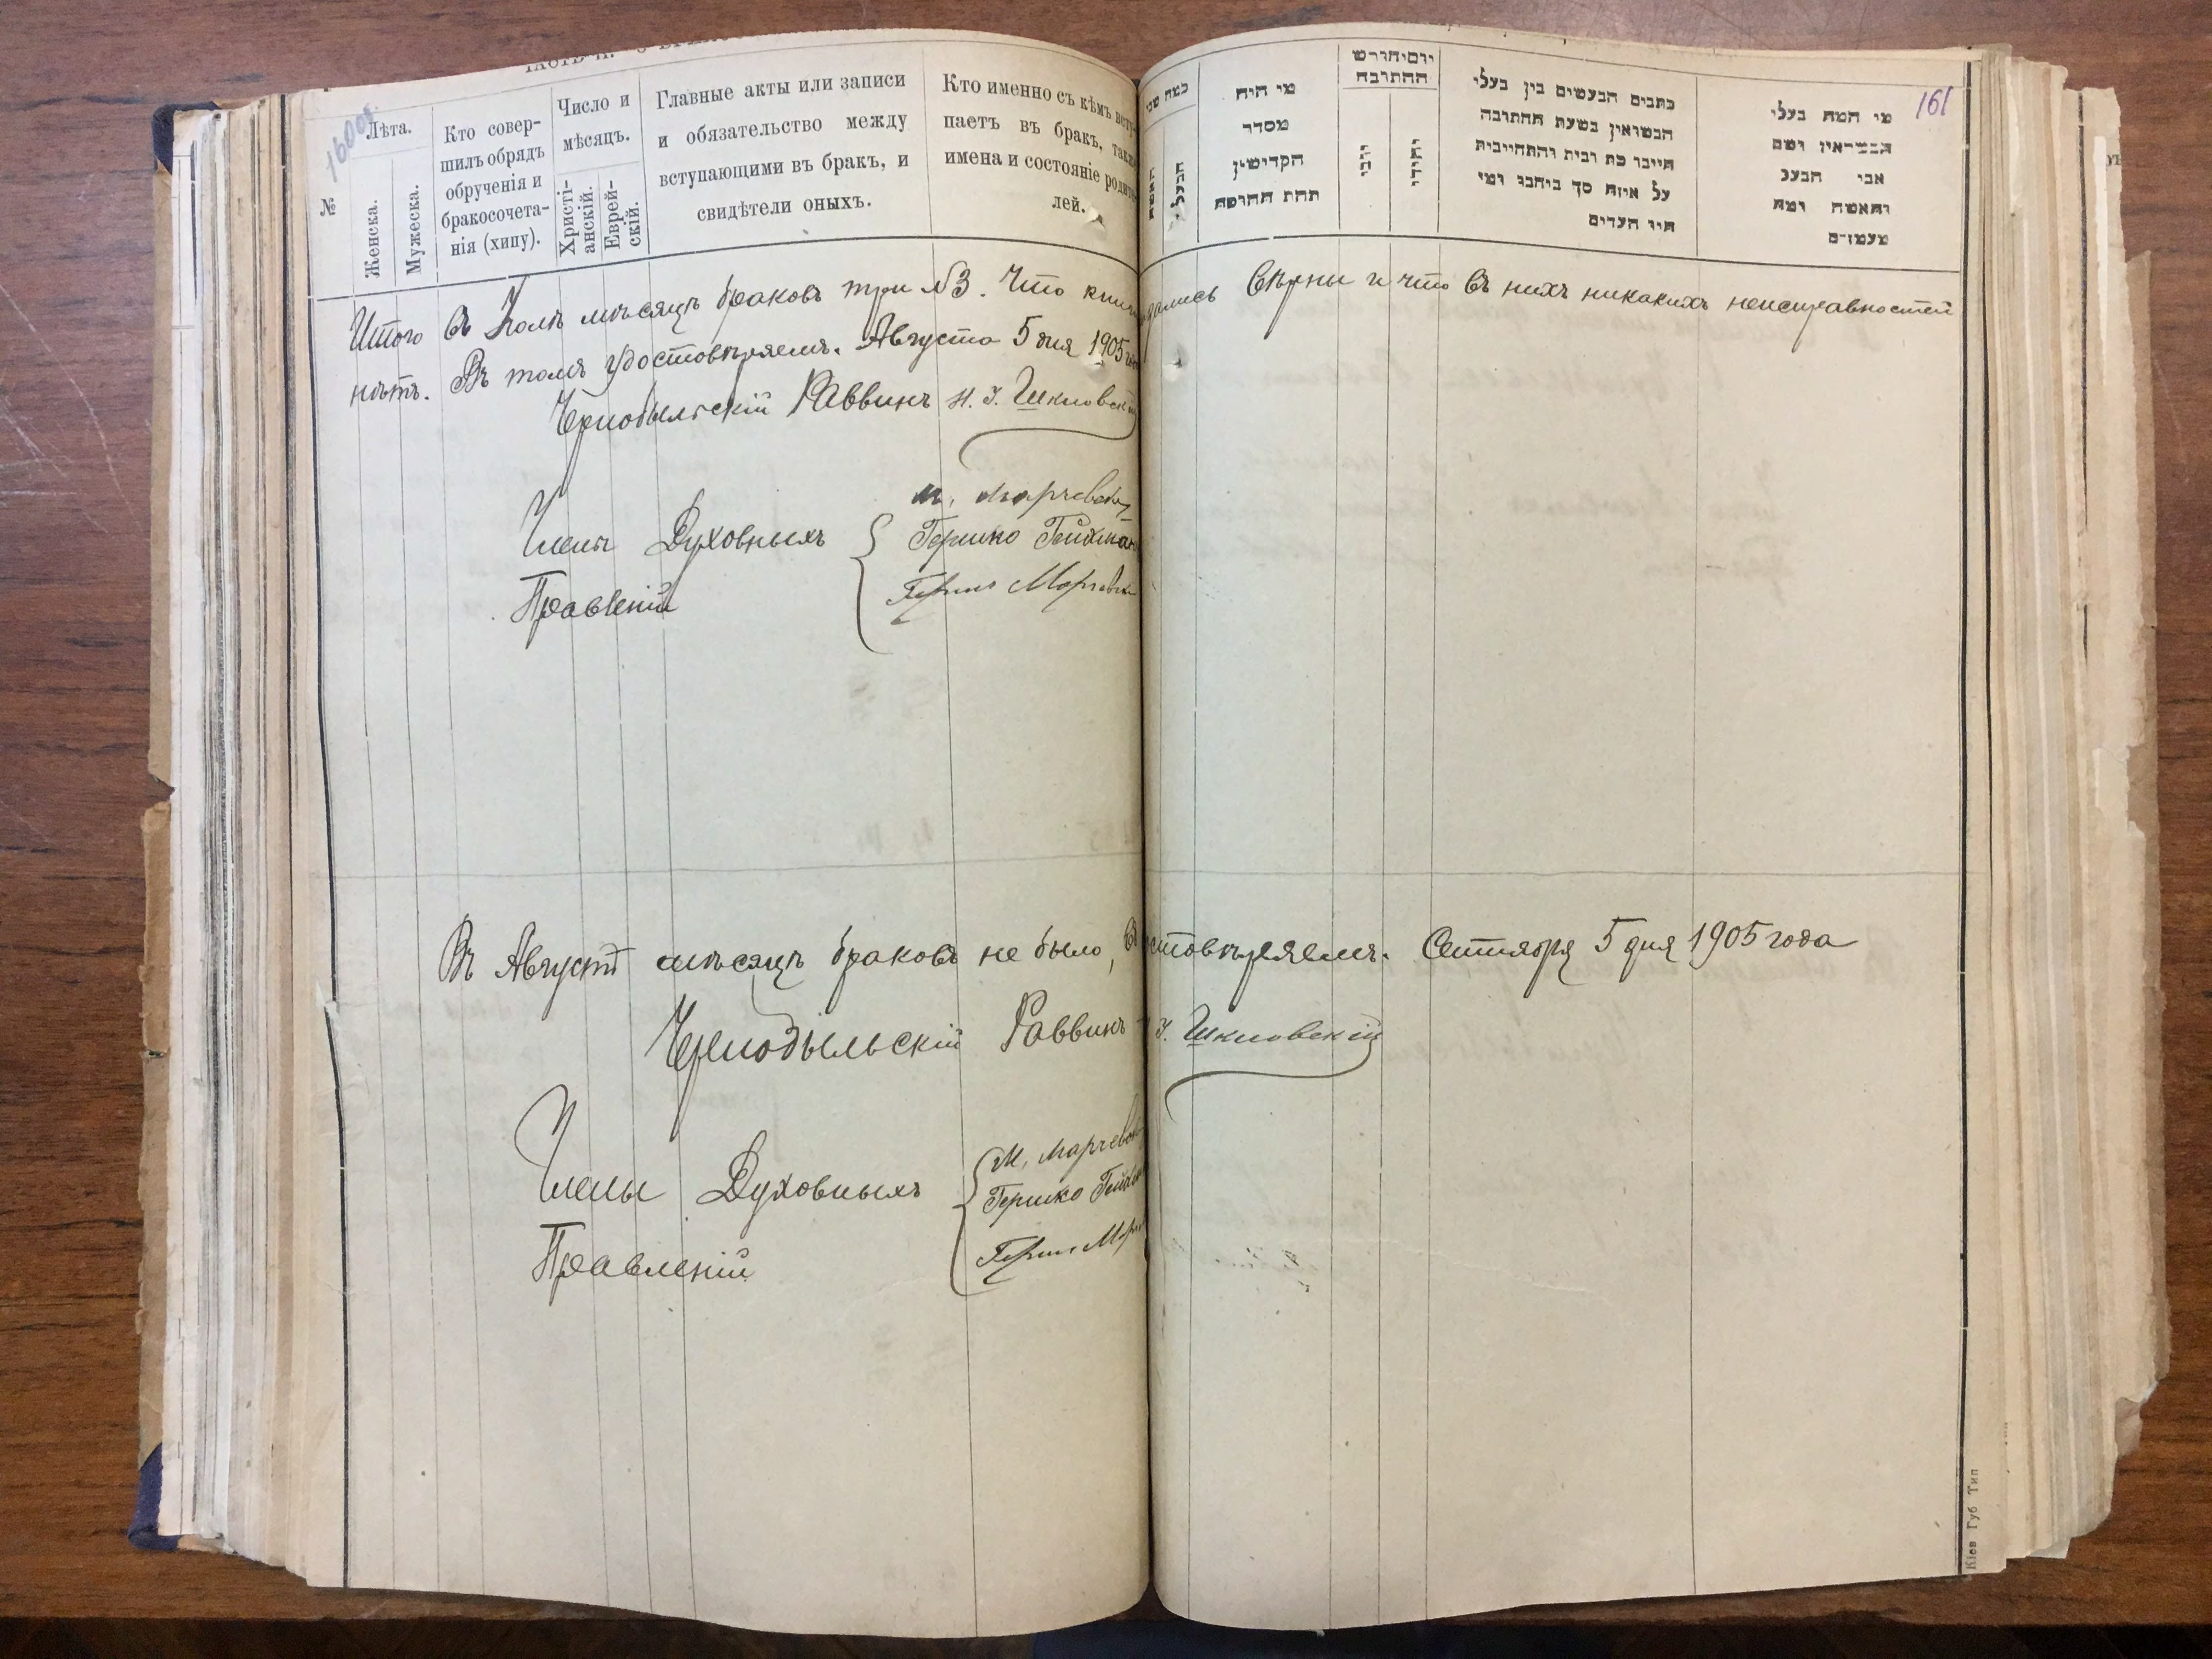 160об
161
№
Лѣта.
Женска.
Мужеска.
Кто совер-
шилъ обрядъ
обрученія и
бракосочета-
нія (хипу).
Число и
мѣсяцъ.
Христі-
анскій.
Еврей-
скій.
Главные акты или записи
и обязательство между
вступающими въ бракъ, и
свидѣтели оныхъ.
Кто именно съ кѣмъ всту-
паетъ въ бракъ, так
имена и состояніе родит
лей.
כמה שני
האשה
הבעל
מי היה
מסדר
הקדישין
תחת החופה
יום וחודש
החתובה
יוני
יהודי
כתבים הנעשים בין בעלי
הנשואין בשעת החתובה
חייבו כת ובית והתחייבות
על איזה סך ביחבו ומי
היו העדים
מי המה בעלי
הנשואין ושם
אבי הבעל
והאשה ומה
מעמדם
Итого въ Іюлѣ мѣсяцѣ браковъ три №3. Что книг дались вѣрны и что въ нихъ никакихъ неисправностей
нѣтъ. Въ томъ удостовѣряемъ. Августа 5 дня 1905 го
Чернобыльскій Раввинъ Н. І. Шкловскій
Члены Духовныхъ
Правленій
М. Марчевск
Гершко Гейхман
Герш Марчевск
Въ Августѣ мѣсяцѣ браковъ не было, в стовѣряемъ. Сентября 5 дня 1905 года
Чернобыльскій Раввинъ І. Шкловскій
Члены Духовныхъ
Правленій
М. Марчевск
Гершко Гейхм
Герш Мар
Кіев Губ Тип